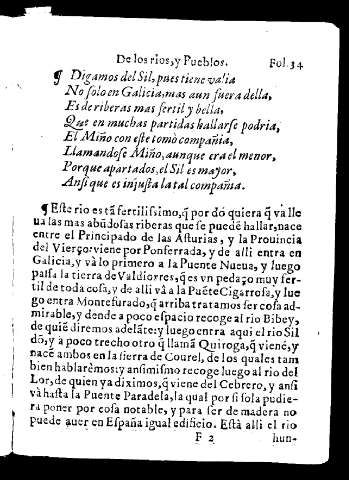 De los rios, y Pueblos. Fol. 34
¶ Digamos del Sil, pues tiene valia
No solo en Galicia, mas aun fuera della,
Es de riberas mas fertil y bella,
Que en muchas partidas hallarse podria,
El Miño con este tomò compañia,
Llamandose Miño, aunque era el menor,
Porque apartados, el Sil es mayor,
Ansi que es injusta la tal compañia.
¶ Este rio es tã fertilissimo, q̃ por dõ quiera q̃ va lle
ua las mas abũdosas riberas que se puede hallar, nace
entre el Principado de las Asturias, y la Prouincia
del Vierço: viene por Ponferrada, y de alli entra en
Galicia, y và lo primero a la Puente Nueua, y luego
passa la tierra de Valdiorres, q̃ es vn pedaço muy fer-
til de toda cosa, y de alli và a la Puẽte Cigarrosa, y lue
go entra Montefurado, q̃ arriba tratamos ser cosa ad-
mirable, y dende a poco espacio recoge al rio Bibey,
de quiẽ diremos adelãte: y luego entra aqui el rio Sil
dõ, y a poco trecho otro q̃ llamã Quiroga, q̃ viene, y
nacẽ ambos en la sierra de Courel, de los quales tam
bien hablarèmos: y ansimismo recoge luego al rio del
Lor, de quien ya diximos, q̃ viene del Cebrero, y ansi
và hasta la Puente Paradela, la qual por si sola pudie-
ra poner por cosa notable, y para ser de madera no
puede auer en España igual edificio. Està alli el rio
F 2 hun-